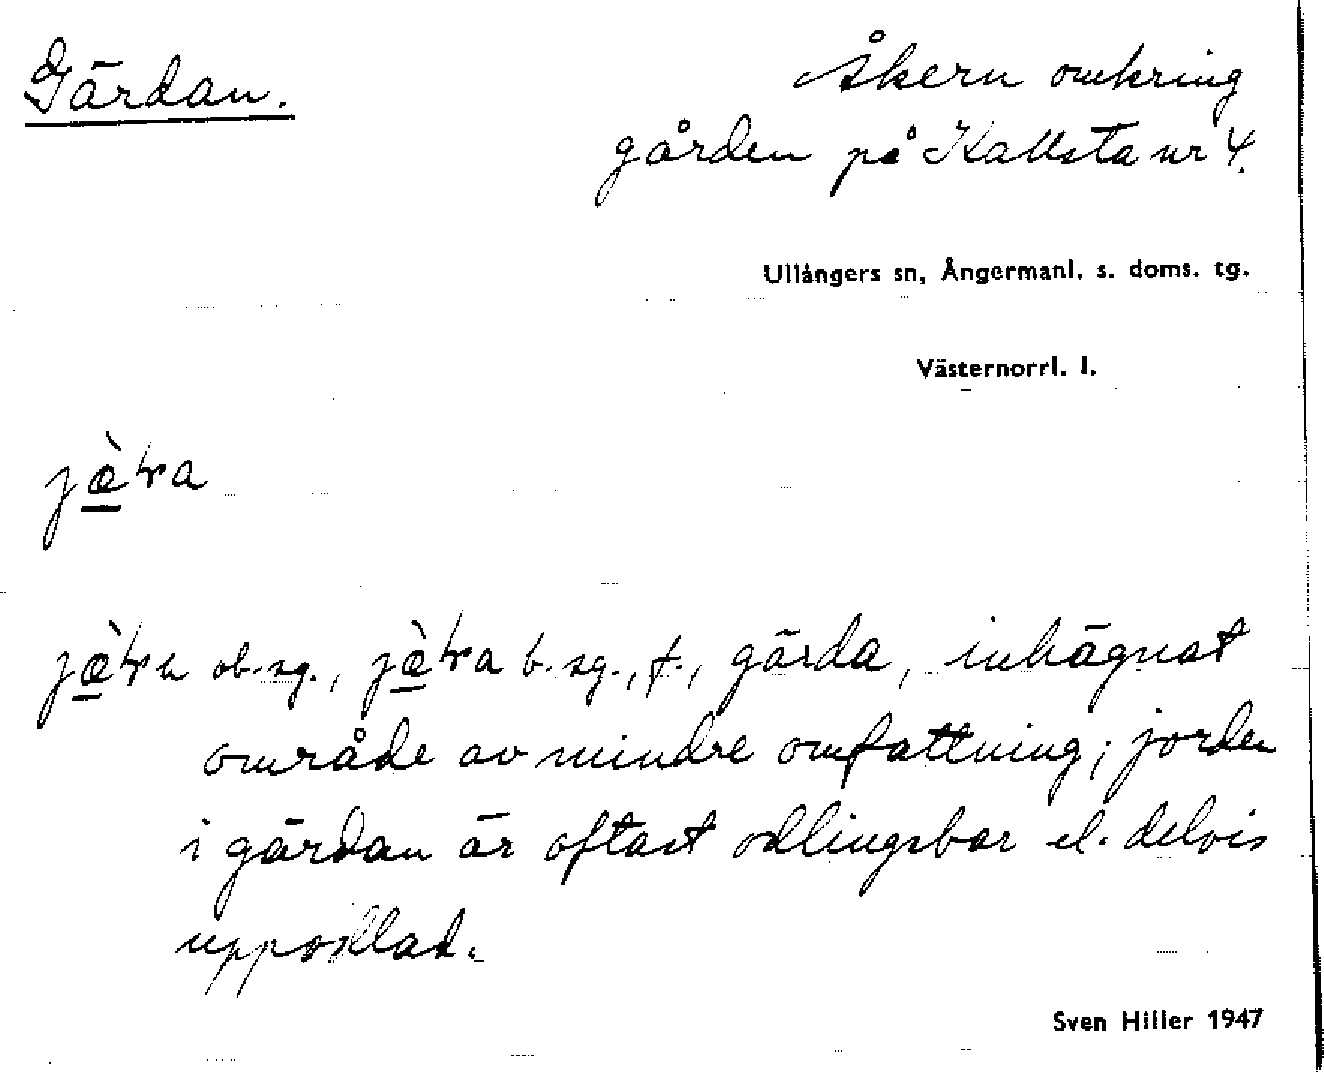 Gärdan.
Åkern omkring
gården på Kallsta nr 4.
Ullångers sn, Ångermanl. s. doms. tg.
Västernorrl. l.
jæ̀ɽa
jæ̀ɽɐ ob. sg., jæ̀ɽa b. sg., f., gärda, inhägnat
område av mindre omfattning; jorden
i gärdan är oftast odlingsbar el. delvis
uppodlad.
Sven Hiller 1947